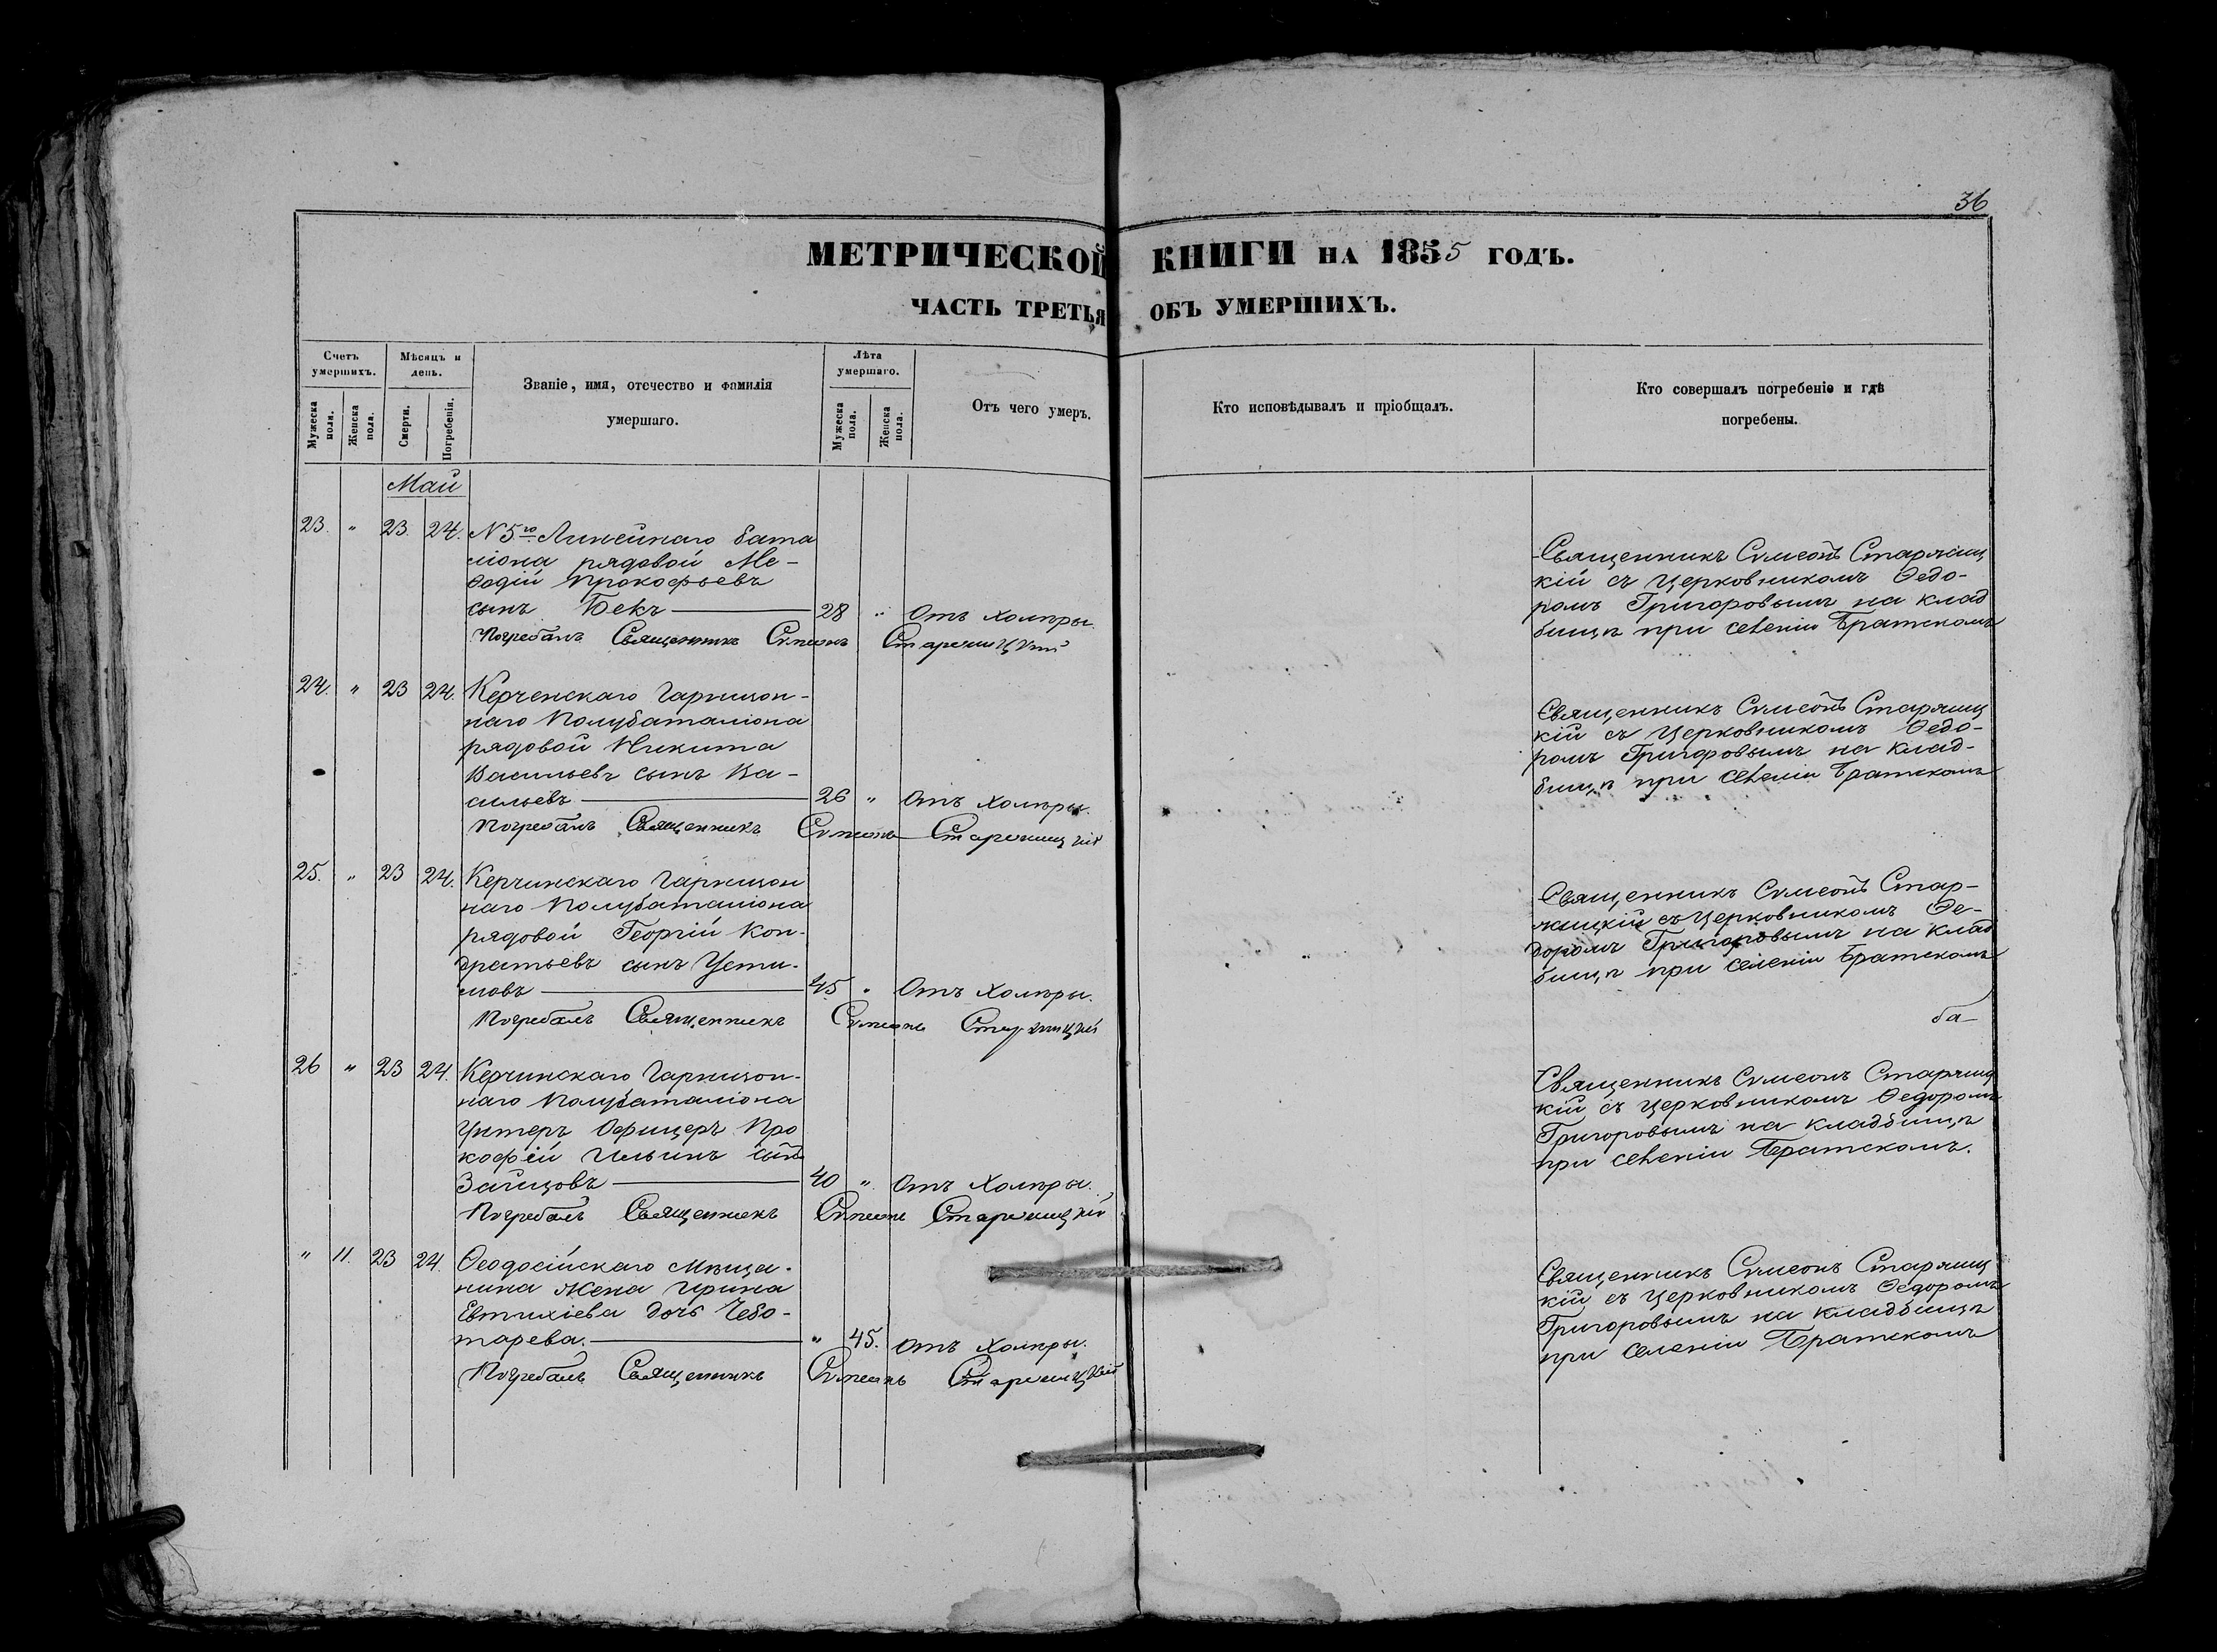 36
МЕТРИЧЕСКОЙ КНИГИ НА 1855 ГОДЪ.
ЧАСТЬ ТРЕТЬЯ ОБЪ УМЕРШИХЪ.
Счетъ умершихъ.
Мужеска пола.
Женска пола.
Мѣсяцъ и день.
Смерти.
Погребенія.
Званіе, имя, отечество и фамилія
умершаго.
Лѣта умершаго.
Мужеска пола.
Женска пола.
Отъ чего умеръ.
Кто исповѣдывалъ и пріобщалъ.
Кто совершалъ погребеніе и гдѣ
погребены.
Май
23. " 23. 24. N 5го Линейнаго бата
ліона рядовой Ме-
ѳодій Прокофьевъ
сынъ Бекъ — 28 " Отъ холеры.
Погребалъ Священникъ Сѵмеонъ Старчицкій
Священникъ Сѵмеонъ Старчиц
кій съ Церковникомъ Ѳедо-
ромъ Григоровымъ на клад
бищѣ при селеніи Братскомъ
24. " 23 24. Керченскаго Гарнизон-
наго Полубаталіона
рядовой Никита
Васильевъ сынъ Ва-
сильевъ — 26 " Отъ холеры.
Погребалъ Священникъ Сѵмеонъ Старчицкій
Священникъ Сѵмеонъ Старчиц
кій съ Церковникомъ Ѳедо-
ромъ Григоровымъ на клад-
бищѣ при селеніи Братскомъ
25. " 23 24. Керчинскаго Гарнизон
наго Полубаталіона
рядовой Георгій Кон-
дратьевъ сынъ Усти-
мовъ — 45 " Отъ холеры.
Погребалъ Священникъ Сѵмеонъ Старчицкій
Священникъ Сѵмеонъ Стар-
чицкій съ Церковникомъ Ѳе-
доромъ Григоровымъ на клад
бищѣ при селеніи Братскомъ
ба-
26 " 23 24. Керчинскаго Гарнизон-
наго Полубаталіона
Унтеръ Офицеръ Про
кофій Ильинъ сынъ
Зайцовъ — 40 " Отъ холеры.
Погребалъ Священникъ Сѵмеонъ Старчицкій
Священникъ Сѵмеонъ Старчиц
кій съ Церковникомъ Ѳедоромъ
Григоровымъ на кладбищѣ
при селеніи Братскомъ.
" 11. 23 24. Ѳеодосійскаго Мѣща-
нина жена Ирина
Евтихіева дочь Чебо-
тарева. — " 45. Отъ холеры.
Погребалъ Священникъ Сѵмеонъ Старчицкій
Священникъ Сѵмеонъ Старчиц
кій съ Церковникомъ Ѳедоромъ
Григоровымъ на кладбищѣ
при селеніи Братскомъ